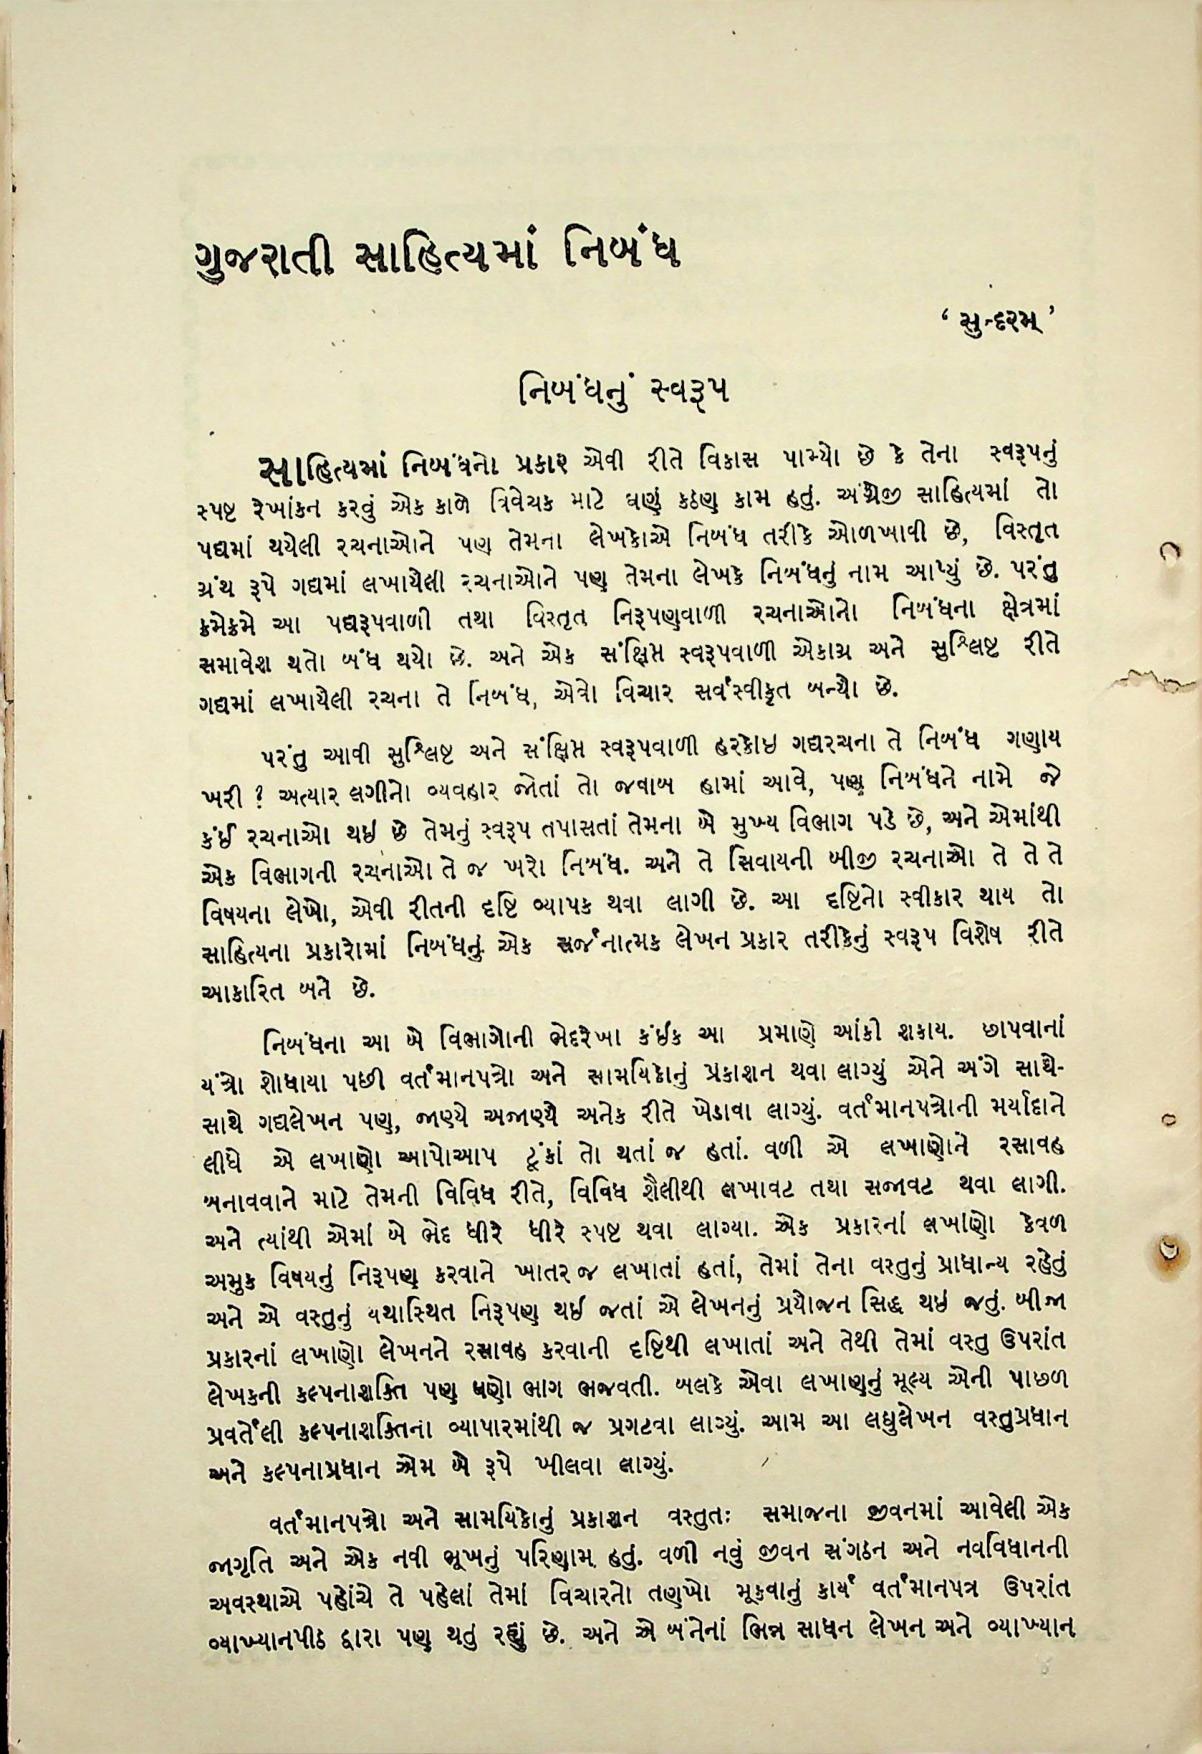 ગુજરાતી સાહિત્યમાં નિબંધ
‘ સુન્દરમ્ ’
નિબંધનું સ્વરૂપ
સાહિત્યમાં નિબંધનો પ્રકાર એવી રીતે વિકાસ પામ્યો છે કે તેના સ્વરૂપનું
સ્પષ્ટ રેખાંકન કરવું એક કાળે ત્રિવેચક માટે ઘણું કઠણ કામ હતું. અંગ્રેજી સાહિત્યમાં તો
પદ્યમાં થયેલી રચનાઓને પણ તેમના લેખકોએ નિબંધ તરીકે ઓળખાવી છે, વિસ્તૃત
ગ્રંથ રૂપે ગદ્યમાં લખાયેલી રચનાઓને પણ તેમના લેખકે નિબંધનું નામ આપ્યું છે. પરંતુ
ક્રમેક્રમે આ પદ્યરૂપવાળી તથા વિસ્તૃત નિરૂપણવાળી રચનાઓનો નિબંધના ક્ષેત્રમાં
સમાવેશ થતો બંધ થયો છે. અને એક સંક્ષિપ્ત સ્વરૂપવાળી એકાગ્ર અને સુશ્લિષ્ટ રીતે
ગદ્યમાં લખાયેલી રચના તે નિબંધ, એવો વિચાર સર્વસ્વીકૃત બન્યો છે.
પરંતુ આવી સુશ્લિષ્ટ અને સંક્ષિપ્ત સ્વરૂપવાળી હરકોઇ ગદ્યરચના તે નિબંધ ગણાય
ખરી ? અત્યાર લગીનો વ્યવહાર જોતાં તો જવાબ હામાં આવે, પણ નિબંધને નામે જે
કંઈ રચનાઓ થઇ છે તેમનું સ્વરૂપ તપાસતાં તેમના બે મુખ્ય વિભાગ પડે છે, અને એમાંથી
એક વિભાગની રચનાઓ તે જ ખરો નિબંધ. અને તે સિવાયની બીજી રચનાઓ તે તે તે
વિષયના લેખો, એવી રીતની દૃષ્ટિ વ્યાપક થવા લાગી છે. આ દૃષ્ટિનો સ્વીકાર થાય તો
સાહિત્યના પ્રકારોમાં નિબંધનું એક સર્જનાત્મક લેખન પ્રકાર તરીકેનું સ્વરૂપ વિશેષ રીતે
આકારિત બને છે.
નિબંધના આ બે વિભાગોની ભેદરેખા કંઇક આ પ્રમાણે આંકી શકાય. છાપવાનાં
યંત્રો શોધાયા પછી વર્તમાનપત્રો અને સામયિકોનું પ્રકાશન થવા લાગ્યું એને અંગે સાથે-
સાથે ગદ્યલેખન પણ, જાણ્યે અજાણ્યે અનેક રીતે ખેડાવા લાગ્યું. વર્તમાનપત્રોની મર્યાદાને
લીધે એ લખાણો આપોઆપ ટૂંકાં તો થતાં જ હતાં. વળી એ લખાણોને રસાવહ
બનાવવાને માટે તેમની વિવિધ રીતે, વિવિધ શૈલીથી લખાવટ તથા સજાવટ થવા લાગી.
અને ત્યાંથી એમાં બે ભેદ ધીરે ધીરે સ્પષ્ટ થવા લાગ્યા. એક પ્રકારનાં લખાણો કેવળ
અમુક વિષયનું નિરૂપણ કરવાને ખાતર જ લખાતાં હતાં, તેમાં તેના વસ્તુનું પ્રાધાન્ય રહેતું
અને એ વસ્તુનું યથાસ્થિત નિરૂપણ થઈ જતાં એ લેખનનું પ્રયોજન સિદ્ધ થઇ જતું. બીજા
પ્રકારનાં લખાણો લેખનને રસાવહ કરવાની દૃષ્ટિથી લખાતાં અને તેથી તેમાં વસ્તુ ઉપરાંત
લેખકની કલ્પનાશક્તિ પણ ઘણો ભાગ ભજવતી. બલકે એવા લખાણનું મૂલ્ય એની પાછળ
પ્રવર્તેલી કલ્પનાશક્તિના વ્યાપારમાંથી જ પ્રગટવા લાગ્યું. આમ આ લઘુલેખન વસ્તુપ્રધાન
અને કલ્પનાપ્રધાન એમ બે રૂપે ખીલવા લાગ્યું.
વર્તમાનપત્રો અને સામયિકોનું પ્રકાશન વસ્તુતઃ સમાજના જીવનમાં આવેલી એક
જાગૃતિ અને એક નવી ભૂખનું પરિણામ હતું. વળી નવું જીવન સંગઠન અને નવવિધાનની
અવસ્થાએ પહોંચે તે પહેલાં તેમાં વિચારનો તણખો મૂકવાનું કાર્ય વર્તમાનપત્ર ઉપરાંત
વ્યાખ્યાનપીઠ દ્વારા પણ થતું રહ્યું છે. અને એ બંનેનાં ભિન્ન સાધન લેખન અને વ્યાખ્યાન